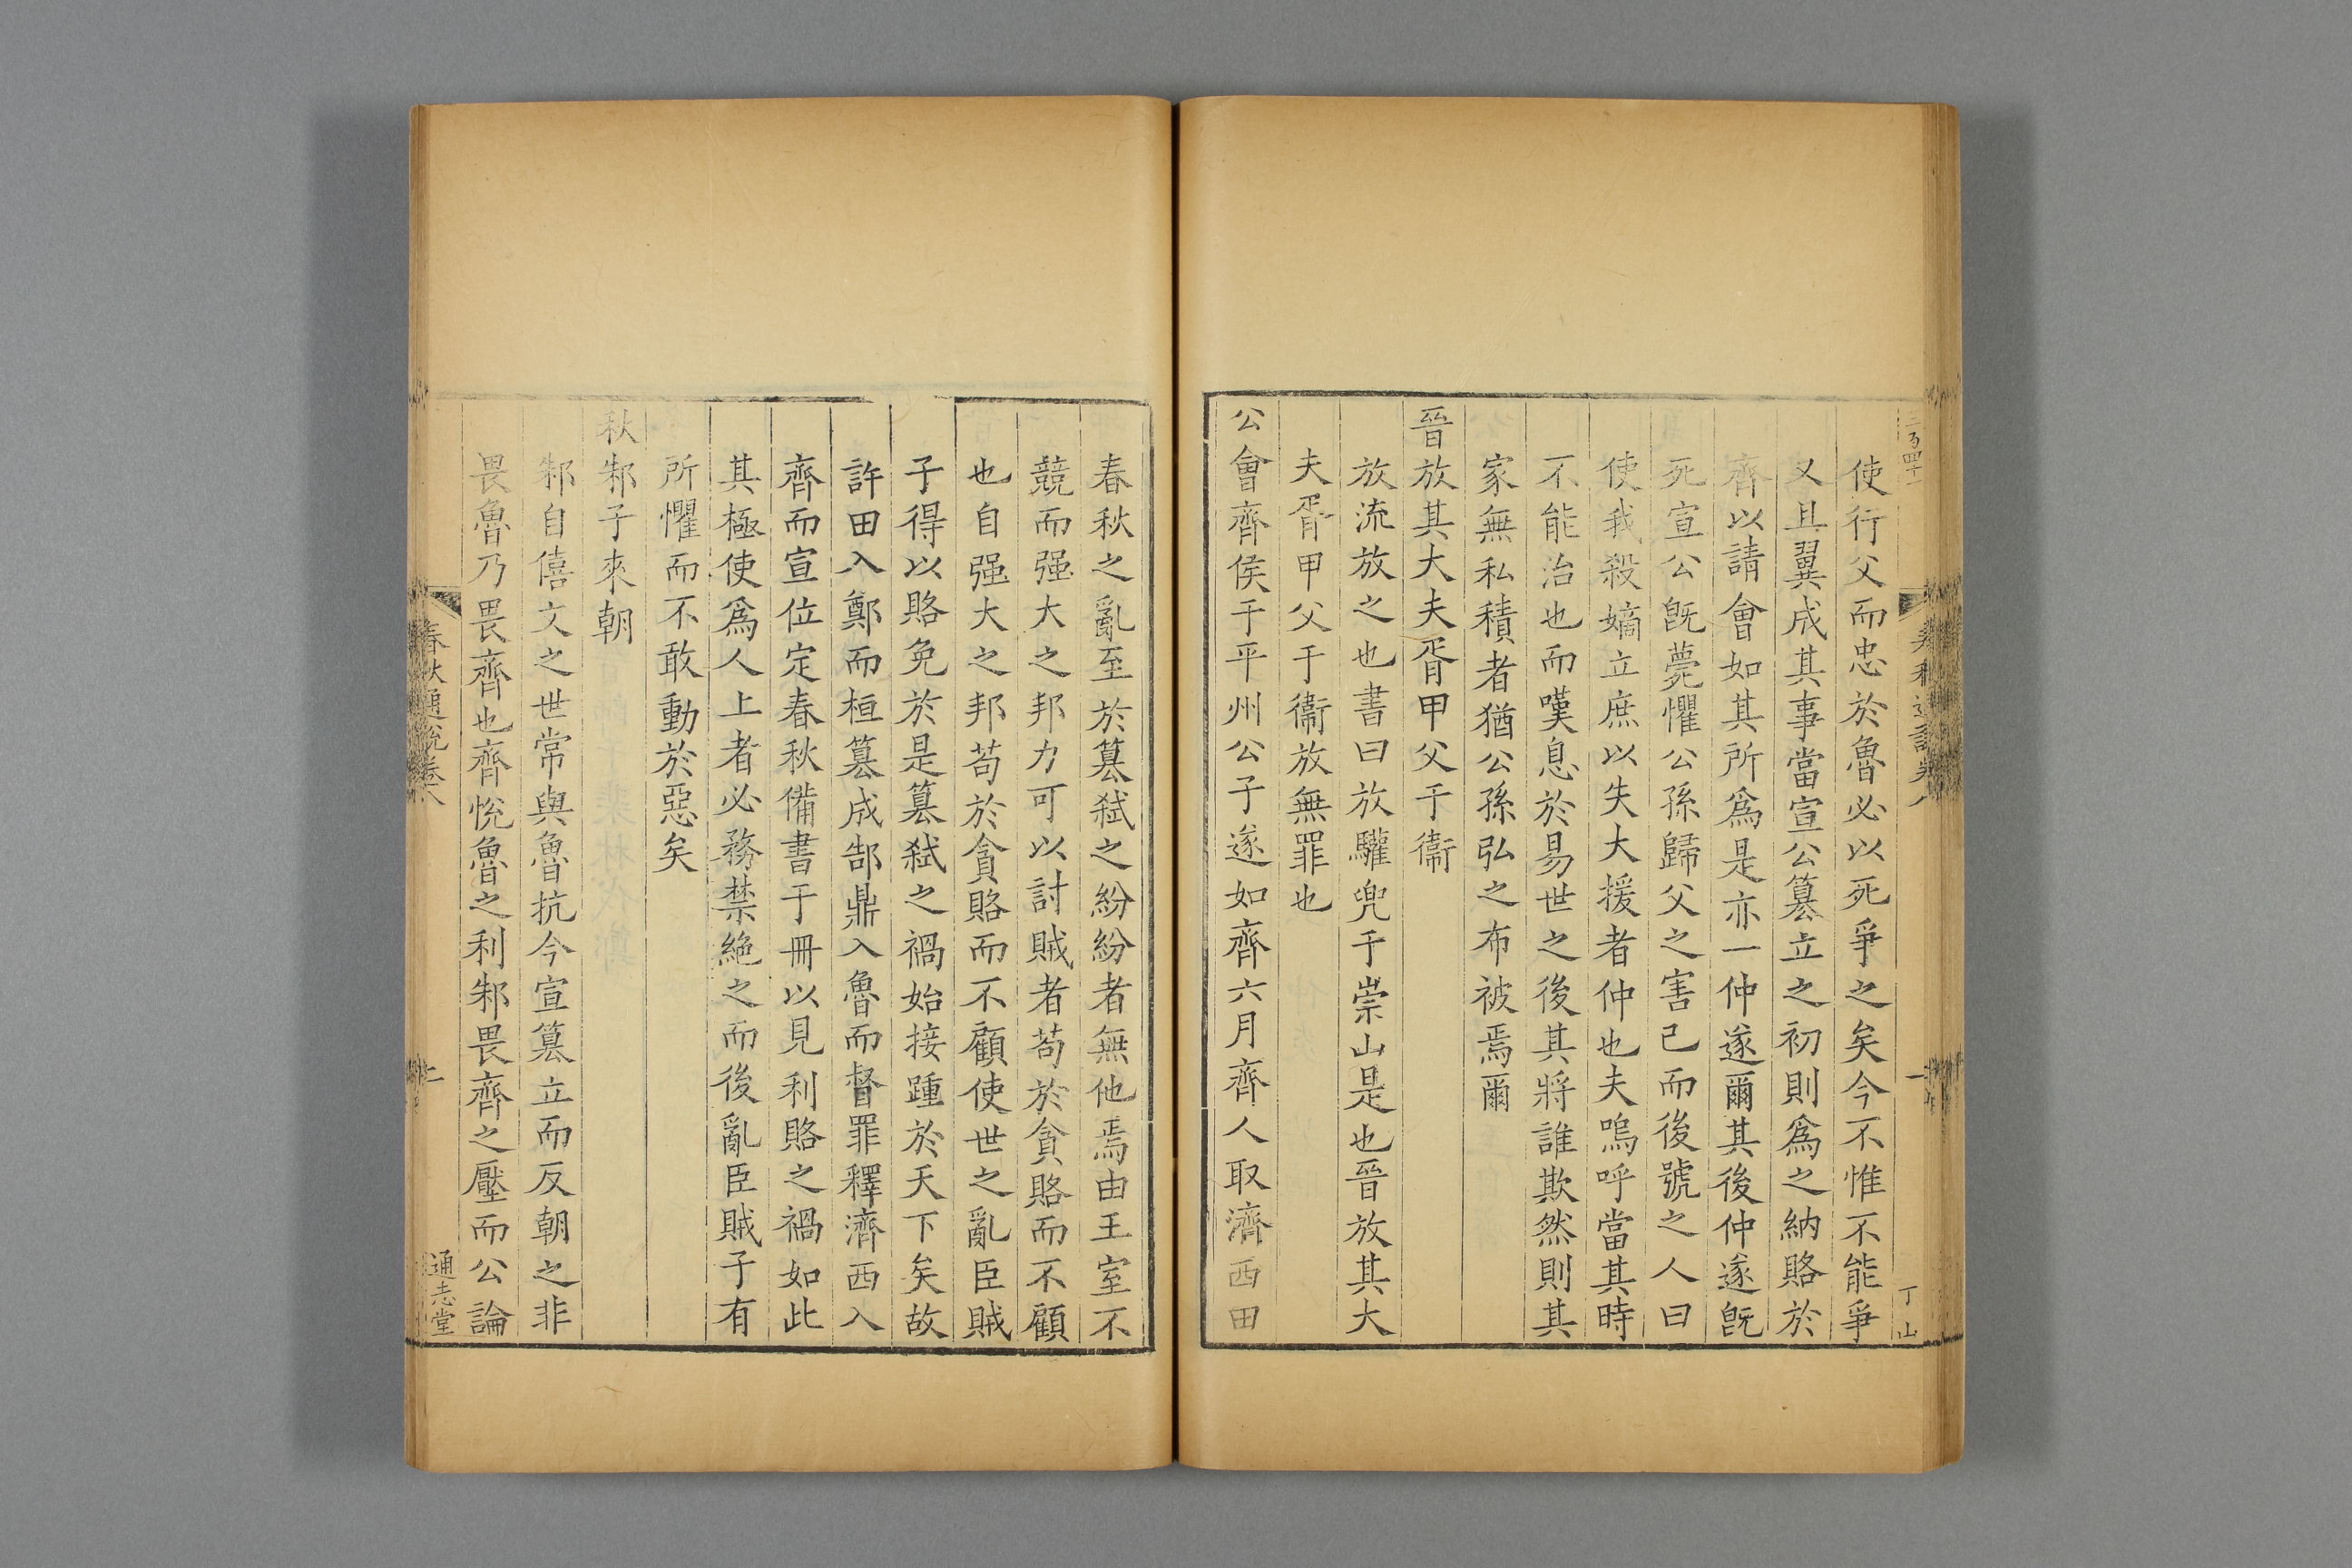 三百四十
春秋通說卷八
一
丁山
使行父而忠於魯必以死爭之矣今不惟不能爭
又且翼成其事當宣公篡立之初則爲之納賂於
齊以請會如其所爲是亦一仲遂爾其後仲遂旣
死宣公旣薨懼公孫歸父之害己而後號之人曰
使我殺嫡立庶以失大援者仲也夫嗚呼當其時
不能治也而嘆息於易世之後其將誰欺然則其
家無私積者猶公孫弘之布被焉爾
晉放其大夫胥甲父于衞
放流放之也書曰放驩兜于崇山是也晉放其大
夫胥甲父于衞放無罪也
公會齊侯于平州公子遂如齊六月齊人取濟西田
春秋之亂至於篡弒之紛紛者無他焉由王室不
競而强大之邦力可以討賊者苟於貪賂而不顧
也自强大之邦苟於貪賂而不顧使世之亂臣賊
子得以賂免於是篡弒之禍始接踵於天下矣故
許田入鄭而桓篡成郜鼎入魯而督罪釋濟西入
齊而宣位定春秋備書于冊以見利賂之禍如此
其極使爲人上者必務禁絕之而後亂臣賊子有
所懼而不敢動於惡矣
秋邾子來朝
邾自僖文之世常與魯抗今宣篡立而反朝之非
畏魯乃畏齊也齊悅魯之利邾畏齊之壓而公論
春秋通說卷八
通志堂